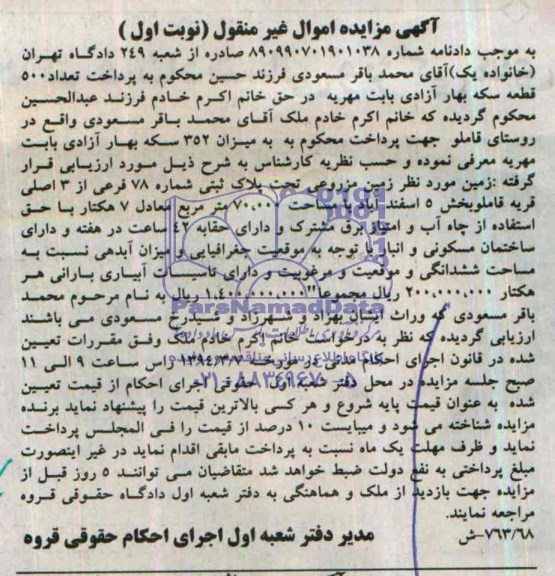 آگهی مزایده اموال غیر منقول (نوبت اول )
به موجب دادنامه شماره ۸۹۰۹۹۰۷۰۱۹۰۱۰۳۸ صادره از شعبه ۲۴۹ دادگاه تهران
(خانواده یک)آقای محمد باقر مسعودی فرزند حسین محکوم به پرداخت تعداد۵۰۰
قطعه سکه بهار آزادی بابت مهریه در حق خانم اکرم خادم فرزند عبدالحسین
محکوم گردیده که خانم اکرم خادم ملک آقای محمد باقر مسعودی واقع در
روستای قاملو جهت پرداخت محکوم به به میزان ۳۵۲ سکه بهار آزادی بابت
مهریه معرفی نموده و حسب نظریه کارشناس به شرح ذیل مورد ارزیابی قرار
گرفته :زمین مورد نظر زمین مزروعی تحت پلاک ثبتی شماره ۷۸ فرعی از ۳ اصلی
قریه قاملوبخش ۵ اسفند آباد با مساحت ۷۰,۰۰۰ متر مربع معادل ۷ هکتار با حق
استفاده از چاه آب و امتیاز برق مشترک و دارای حقابه ۴۲ ساعت در هفته و دارای
ساختمان مسکونی و انبار با توجه به موقعیت جغرافیایی و میزان آبدهی نسبت به
مساحت ششدانگی و موقعیت و مرغوبیت و دارای تاسیسات آبیاری بارانی هر
هکتار ۲۰۰,۰۰۰,۰۰۰ ریال مجموعا" ۱,۴۰۰,۰۰۰,۰۰۰ ریال به نام مرحوم محمد
ParsNamadData
باقر مسعودی که وراث ایشان بهزاد و شهرزاد و شاهرخ مسعودی می باشند
ارزیابی گردیده که نظر به درخواست خانم اکرم خادم ملک وفق مقررات تعیین
شده در قانون اجرای احکام مدنی در مورخه راس ساعت ۹ الی ۱۱
۰۲۱-۸۸۳۴۹۶۷۰-۵
صبح جلسه مزایده در محل دفتر شعبه اول حقوقی اجرای احکام از قیمت تعیین
شده به عنوان قیمت پایه شروع و هر کسی بالاترین قیمت را پیشنهاد نماید برنده
مزایده شناخته می شود و میبایست ۱۰ درصد از قیمت را فی المجلس پرداخت
نماید و ظرف مهلت یک ماه نسبت به پرداخت مابقی اقدام نماید در غیر اینصورت
مبلغ پرداختی به نفع دولت ضبط خواهد شد متقاضیان می توانند ۵ روز قبل از
مزایده جهت بازدید از ملک و هماهنگی به دفتر شعبه اول دادگاه حقوقی قروه
مراجعه نمایند.
۷۶۳/۶۸-ش
مدیر دفتر شعبه اول اجرای احکام حقوقی قروه